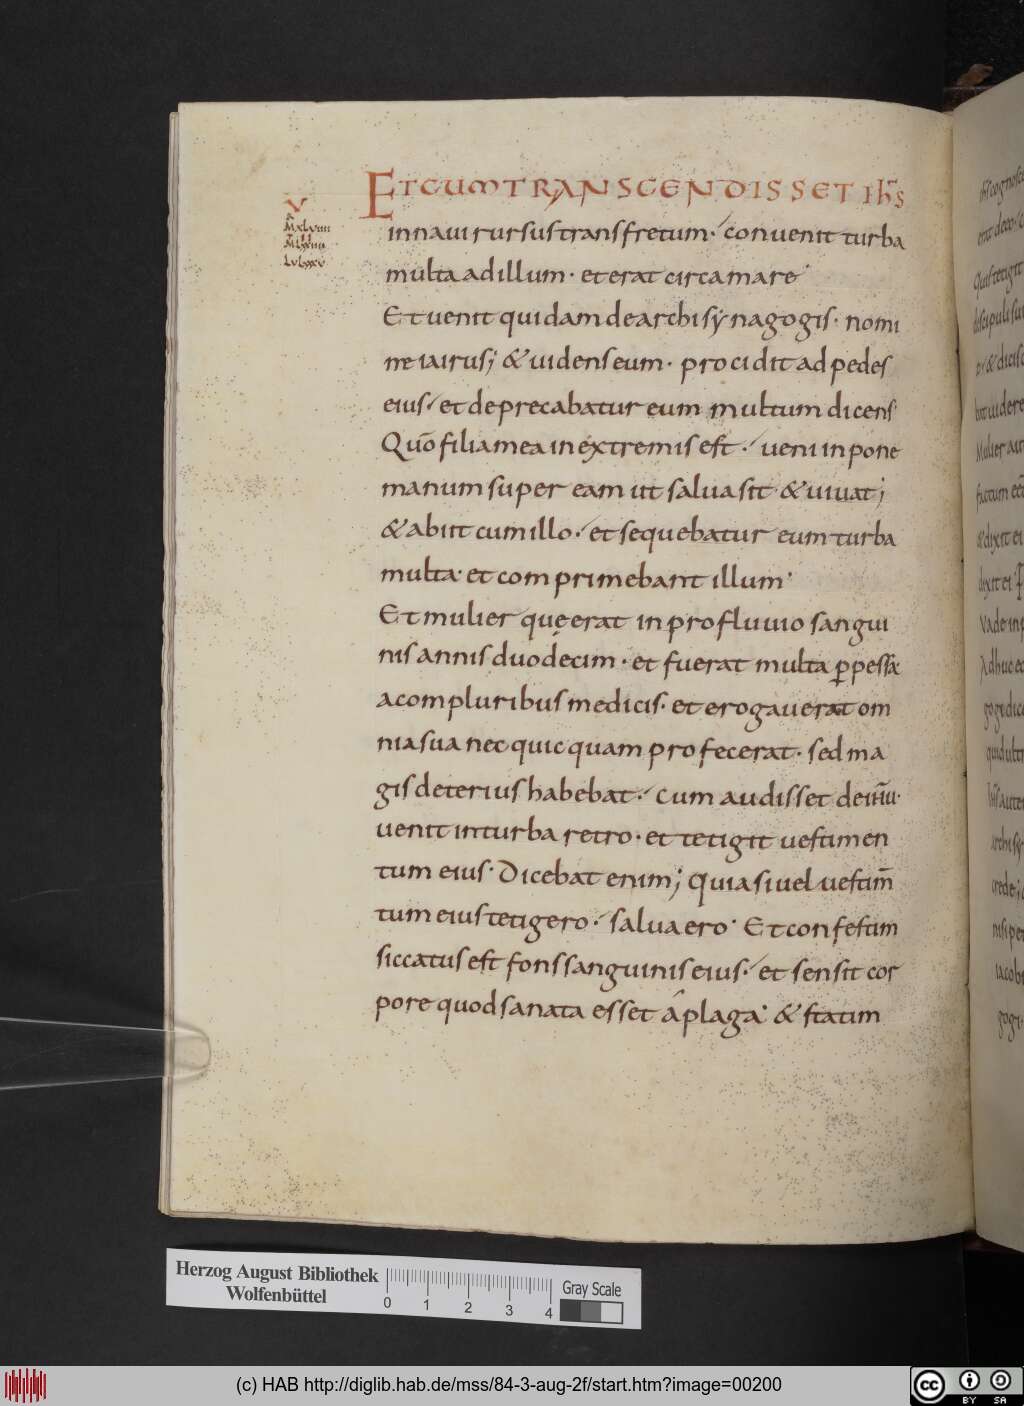 V
ETCUMTRANSCENDISSET Ihs̄
innaui rursus transfretum· conuenit turba
multa ad illum· et erat circa mare·
Et uenit quidam de archisynagogis· nomi
ne iairus; & uidens eum· procidit ad pedes
eius· et deprecabatur eum multum dicens
Quō filia mea in extremis est·/ ueni inpone
manum super eam ut salua sit· & uiuat;
& abiit cum illo·/ et sequebatur eum turba
multa· et comprimebant illum·
Et mulier quę erat in profluuio sangui
nis annis duodecim· et fuerat multa ꝑpessa
a compluribus medicis· et erogauerat om
nia sua nec quicquam profecerat· sed ma
gis deterius habebat·/ cum audisset de ihū·
uenit in turba retro· et tetigit uestimen
tum eius· Dicebat enim; Quia si uel uestim̄
tum eius tetigero·/ salua ero· Et confestim
siccatus est fons sanguinis eius·/ et sensit cor
pore quod sanata esset a plaga· & statim
Herzog August Bibliothek
Wolfenbüttel
0 1 2 3 4
Gray Scale
(c) HAB http://diglib.hab.de/mss/84-3-aug-2f/start.htm?image=00200
cc BY SA